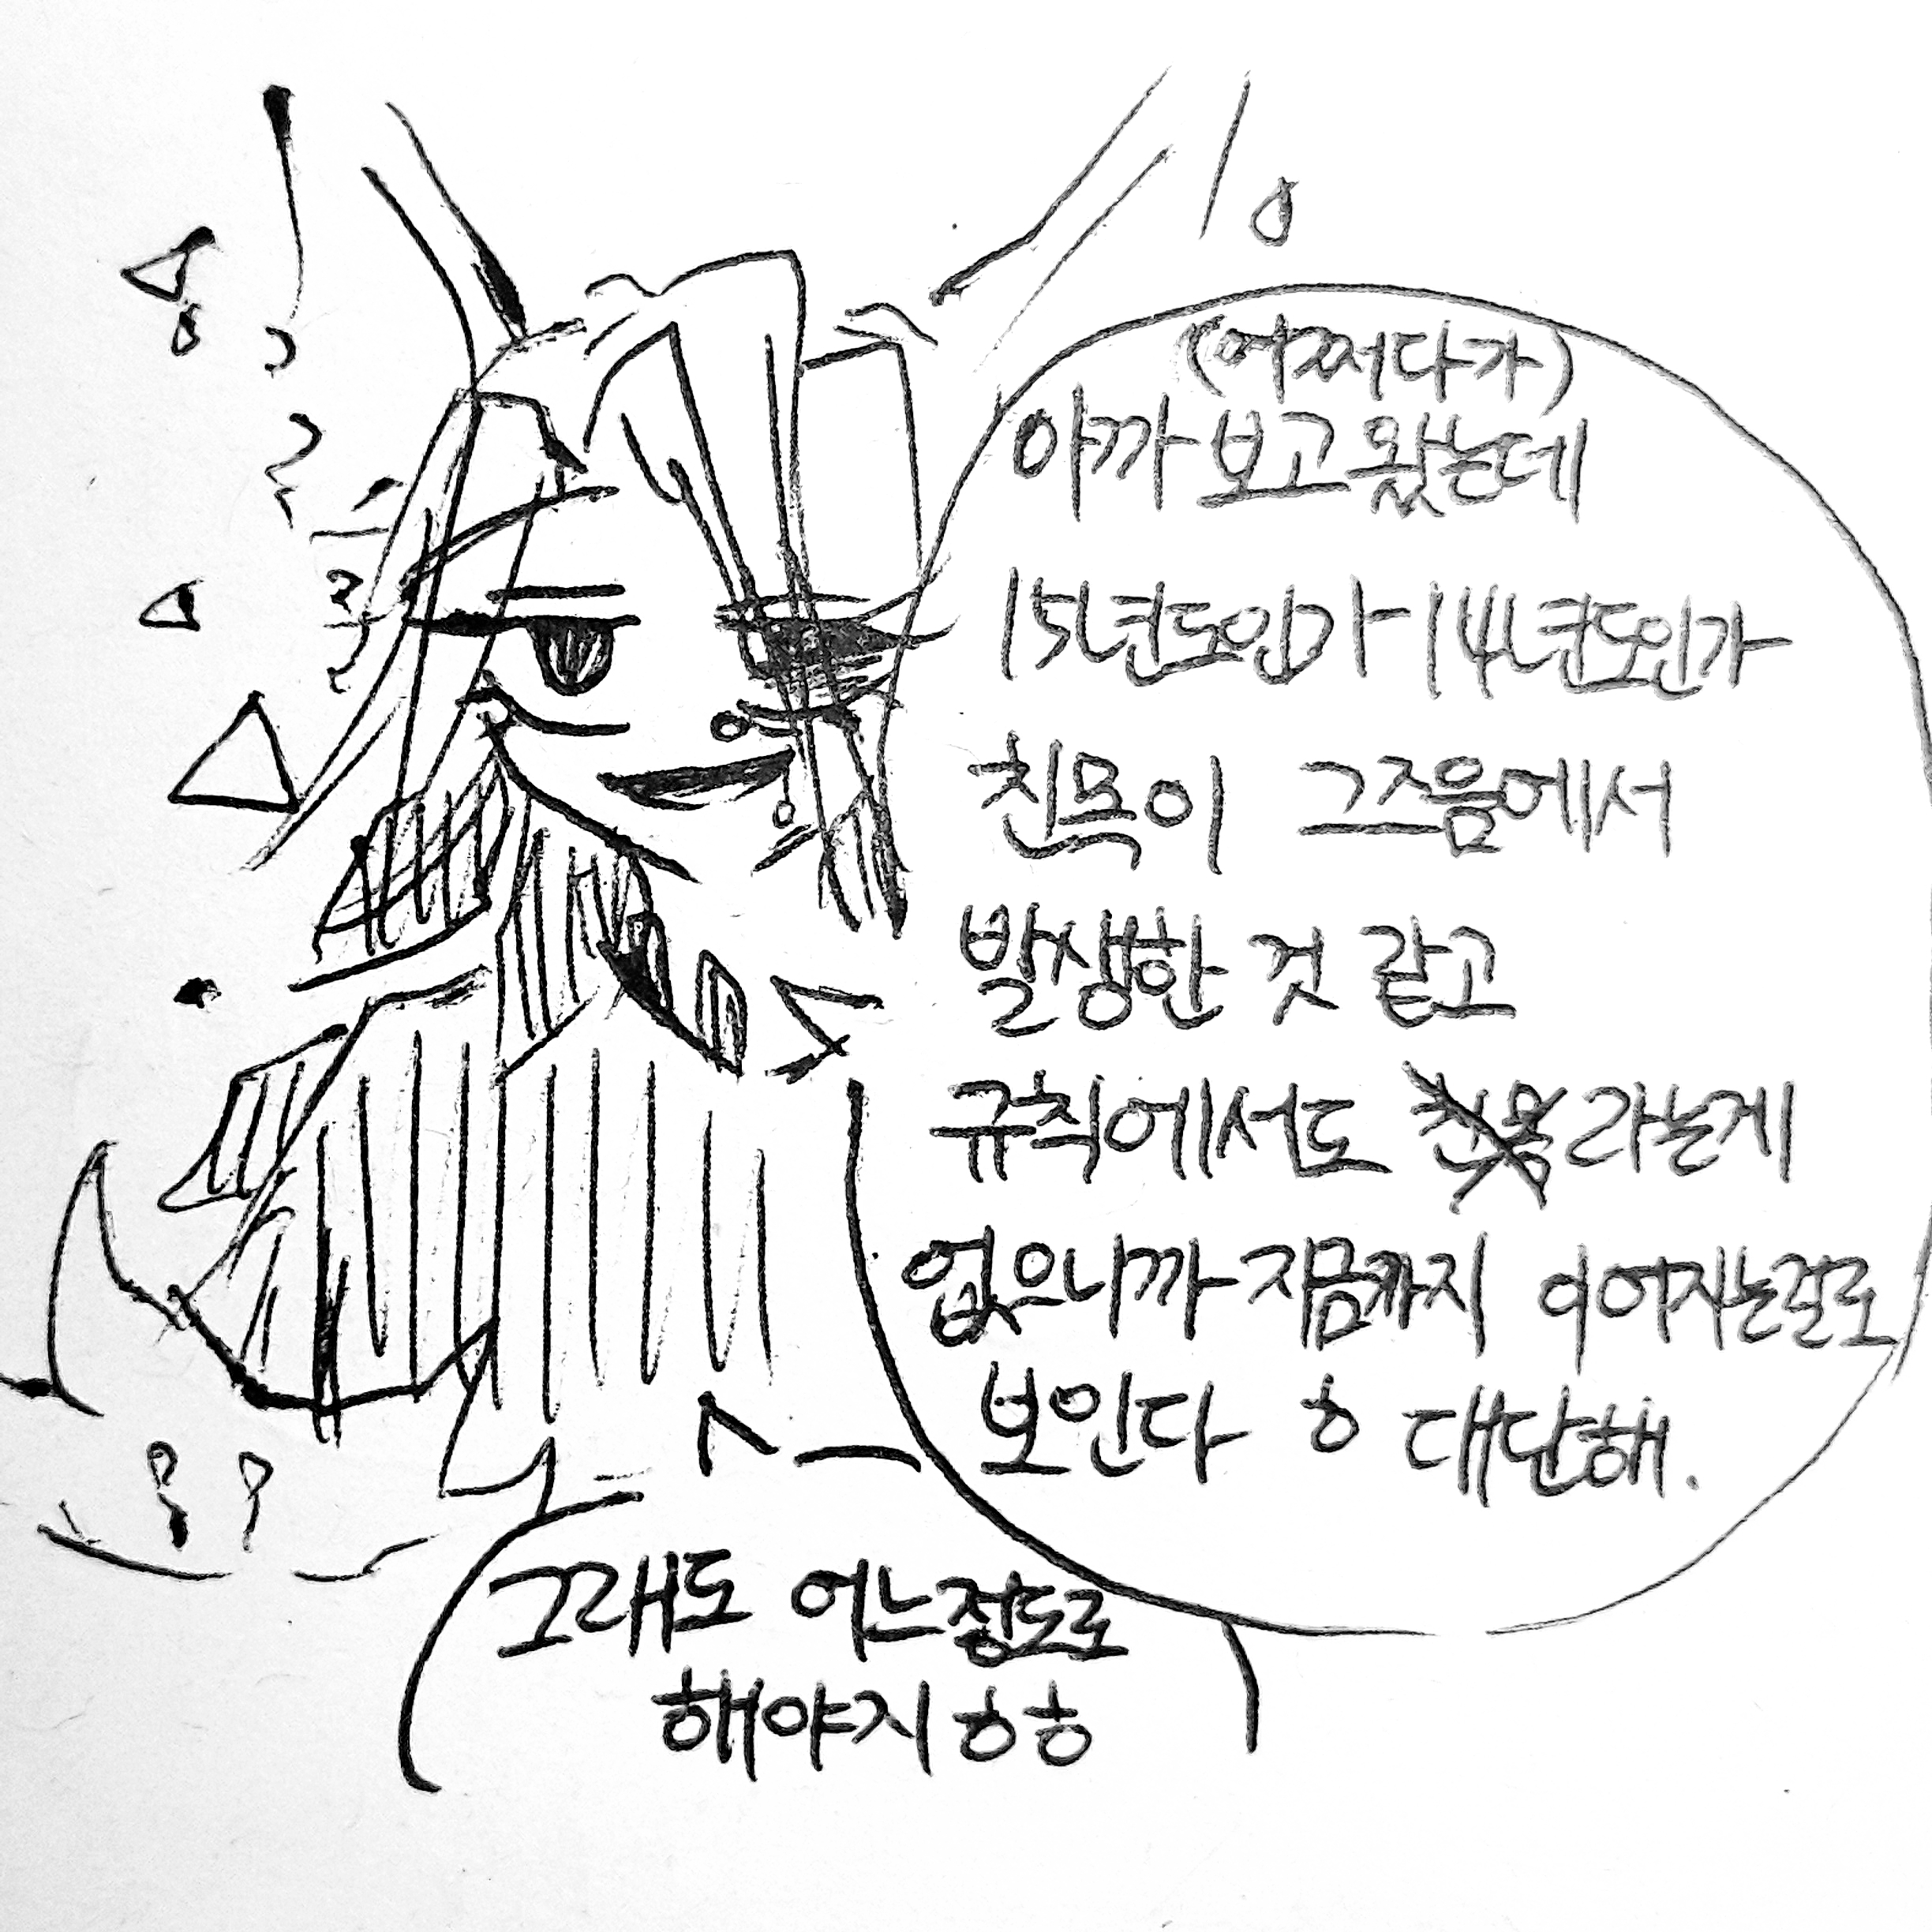 (어쩌다가)
아까 보고왔는데
15년도인가 14년도인가
친목이 그즈음에서
발생한 것 같고
규칙에서도 라는게
없으니까 지금까지 이어지는걸로
보인다 ㅎ 대단해.
그래도 어느정도로
해야지 ㅎㅎ